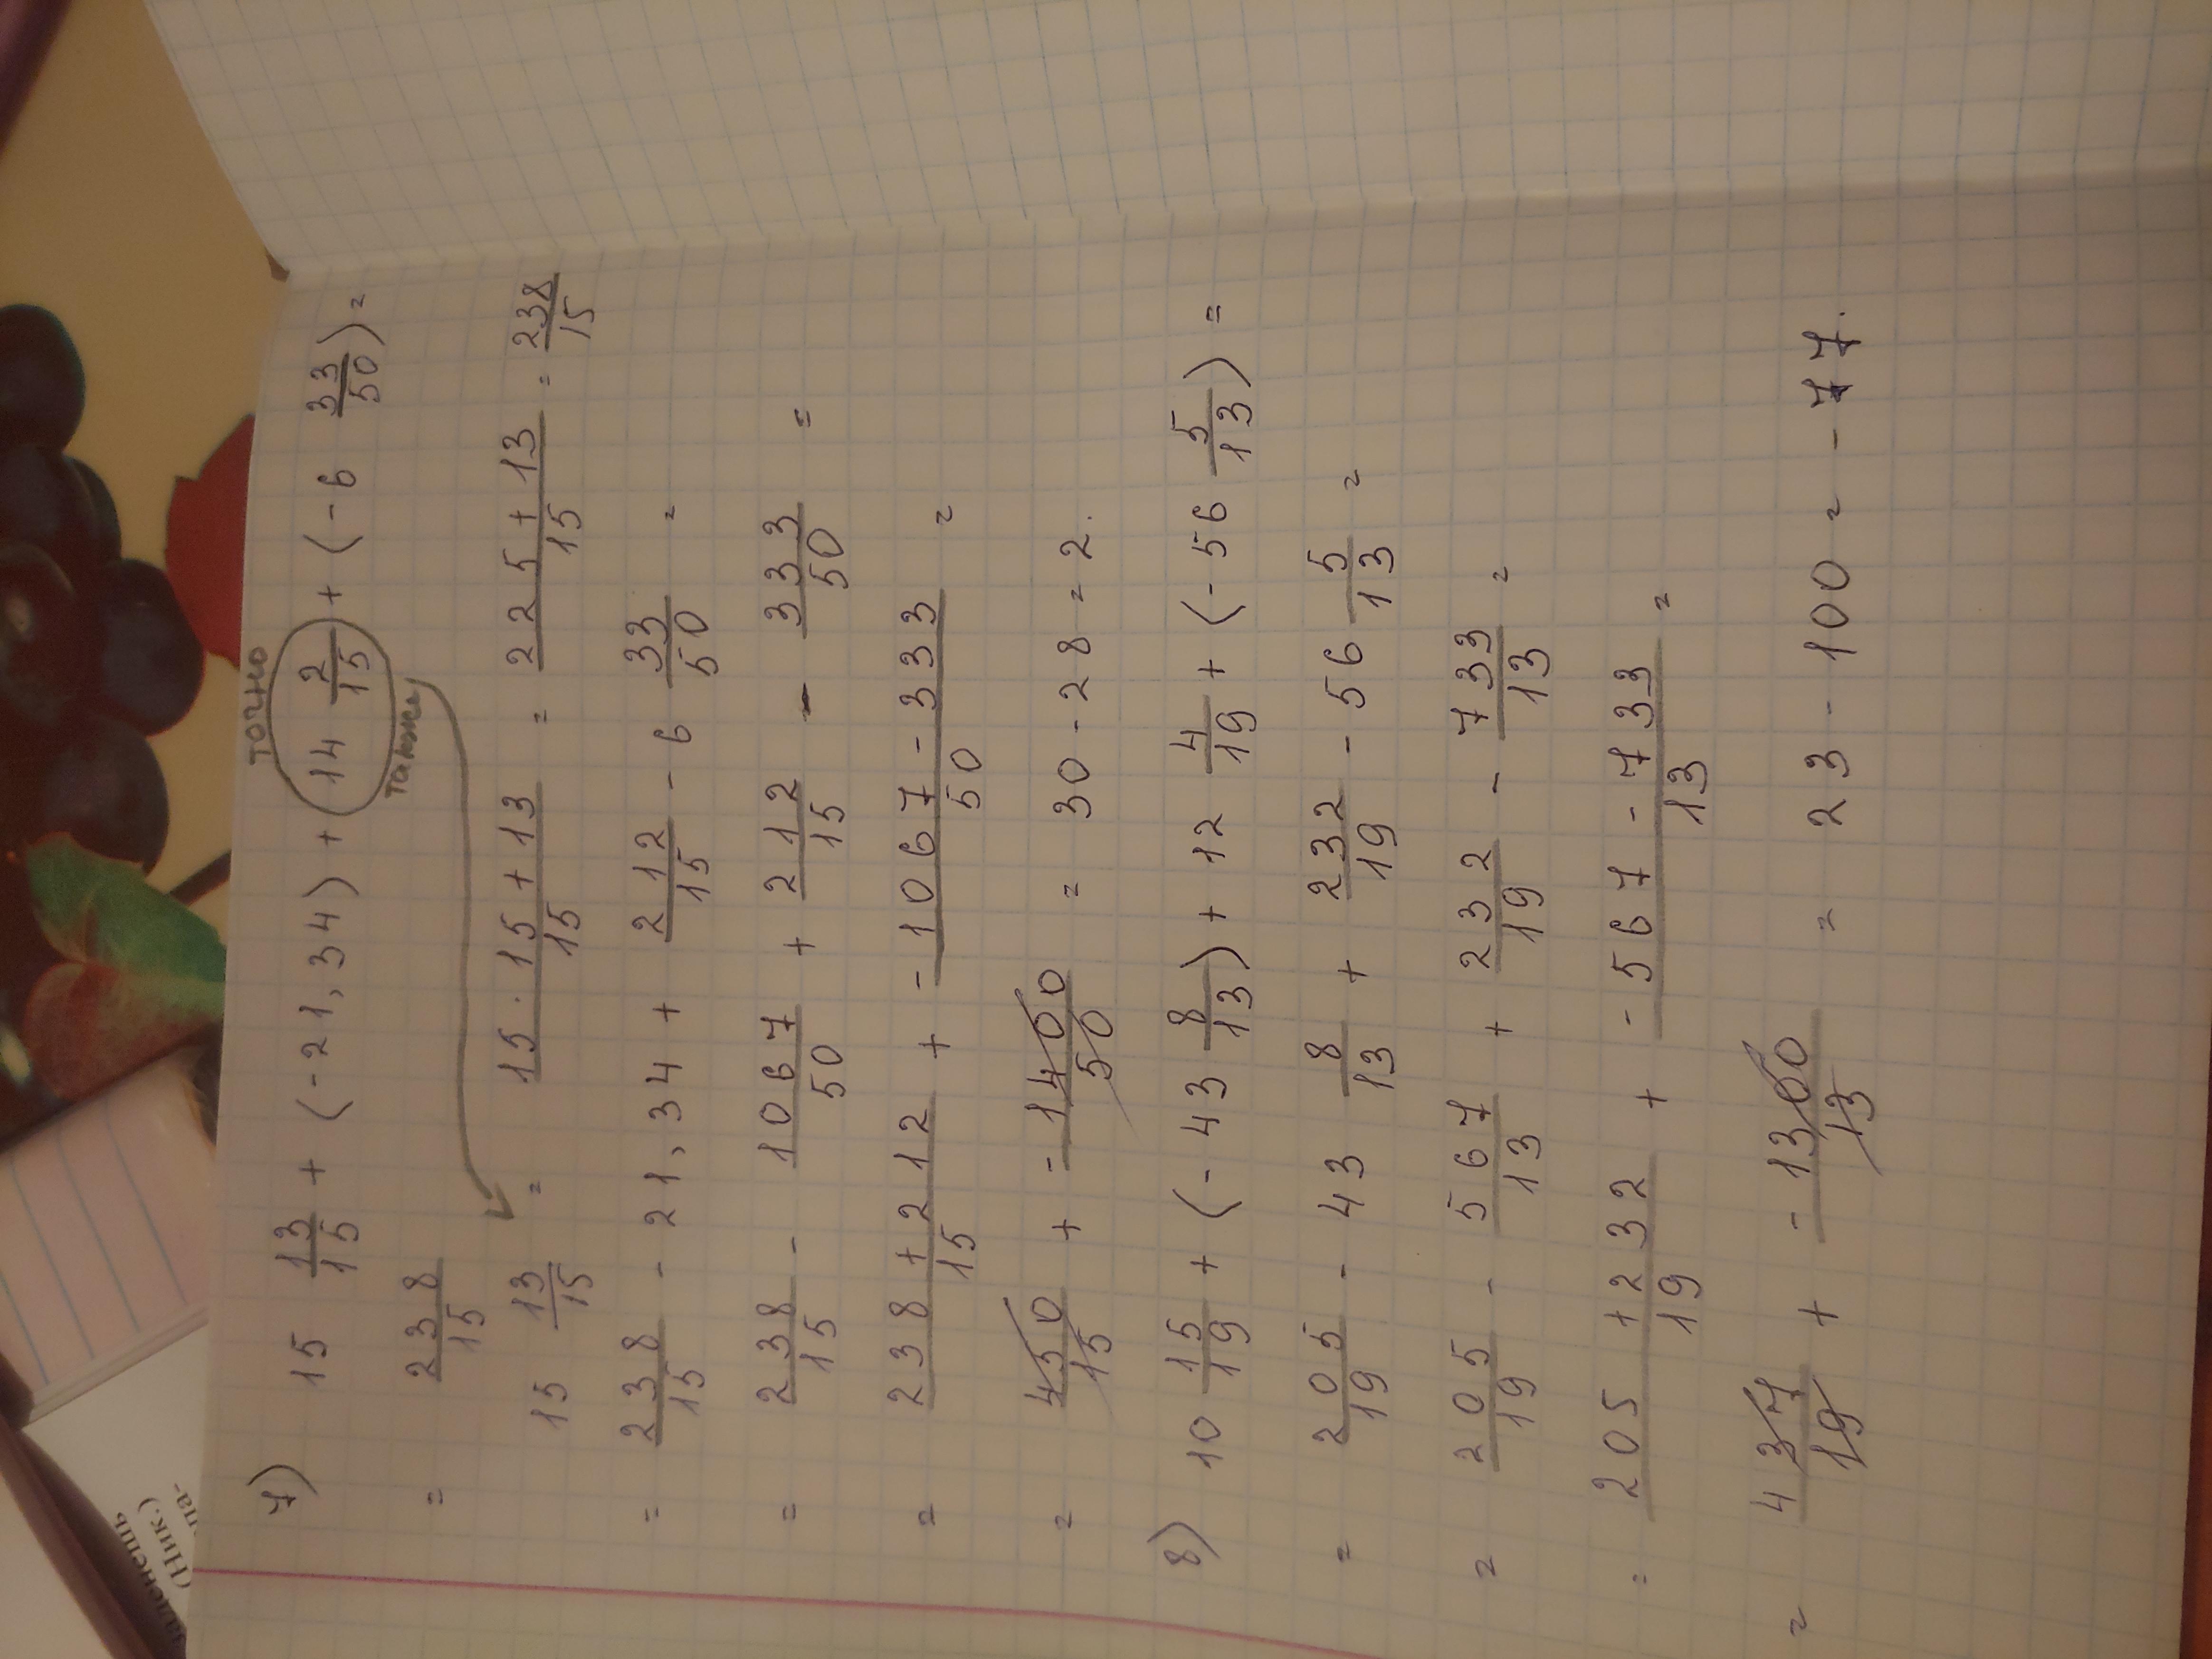 точно
7) 15 13/15 + (-21,34) + 14 2/15 + (-6 33/50) =
также
= 238/15
15 13/15 = (15·15+13)/15 = (225+13)/15 = 238/15
= 238/15 - 21,34 + 212/15 - 6 33/50 =
= 238/15 - 1067/50 + 212/15 - 333/50 =
= (238+212)/15 + (-1067-333)/50 =
= 450/15 + -1400/50 = 30-28=2.
8) 10 15/19 + (-43 8/13) + 12 4/19 + (-56 5/13) =
= 205/19 - 43 8/13 + 232/19 - 56 5/13 =
= 205/19 - 567/13 + 232/19 - 733/13 =
= (205+232)/19 + (-567-733)/13 =
= 437/19 + -1300/13 = 23-100=-77.
(Ник.)